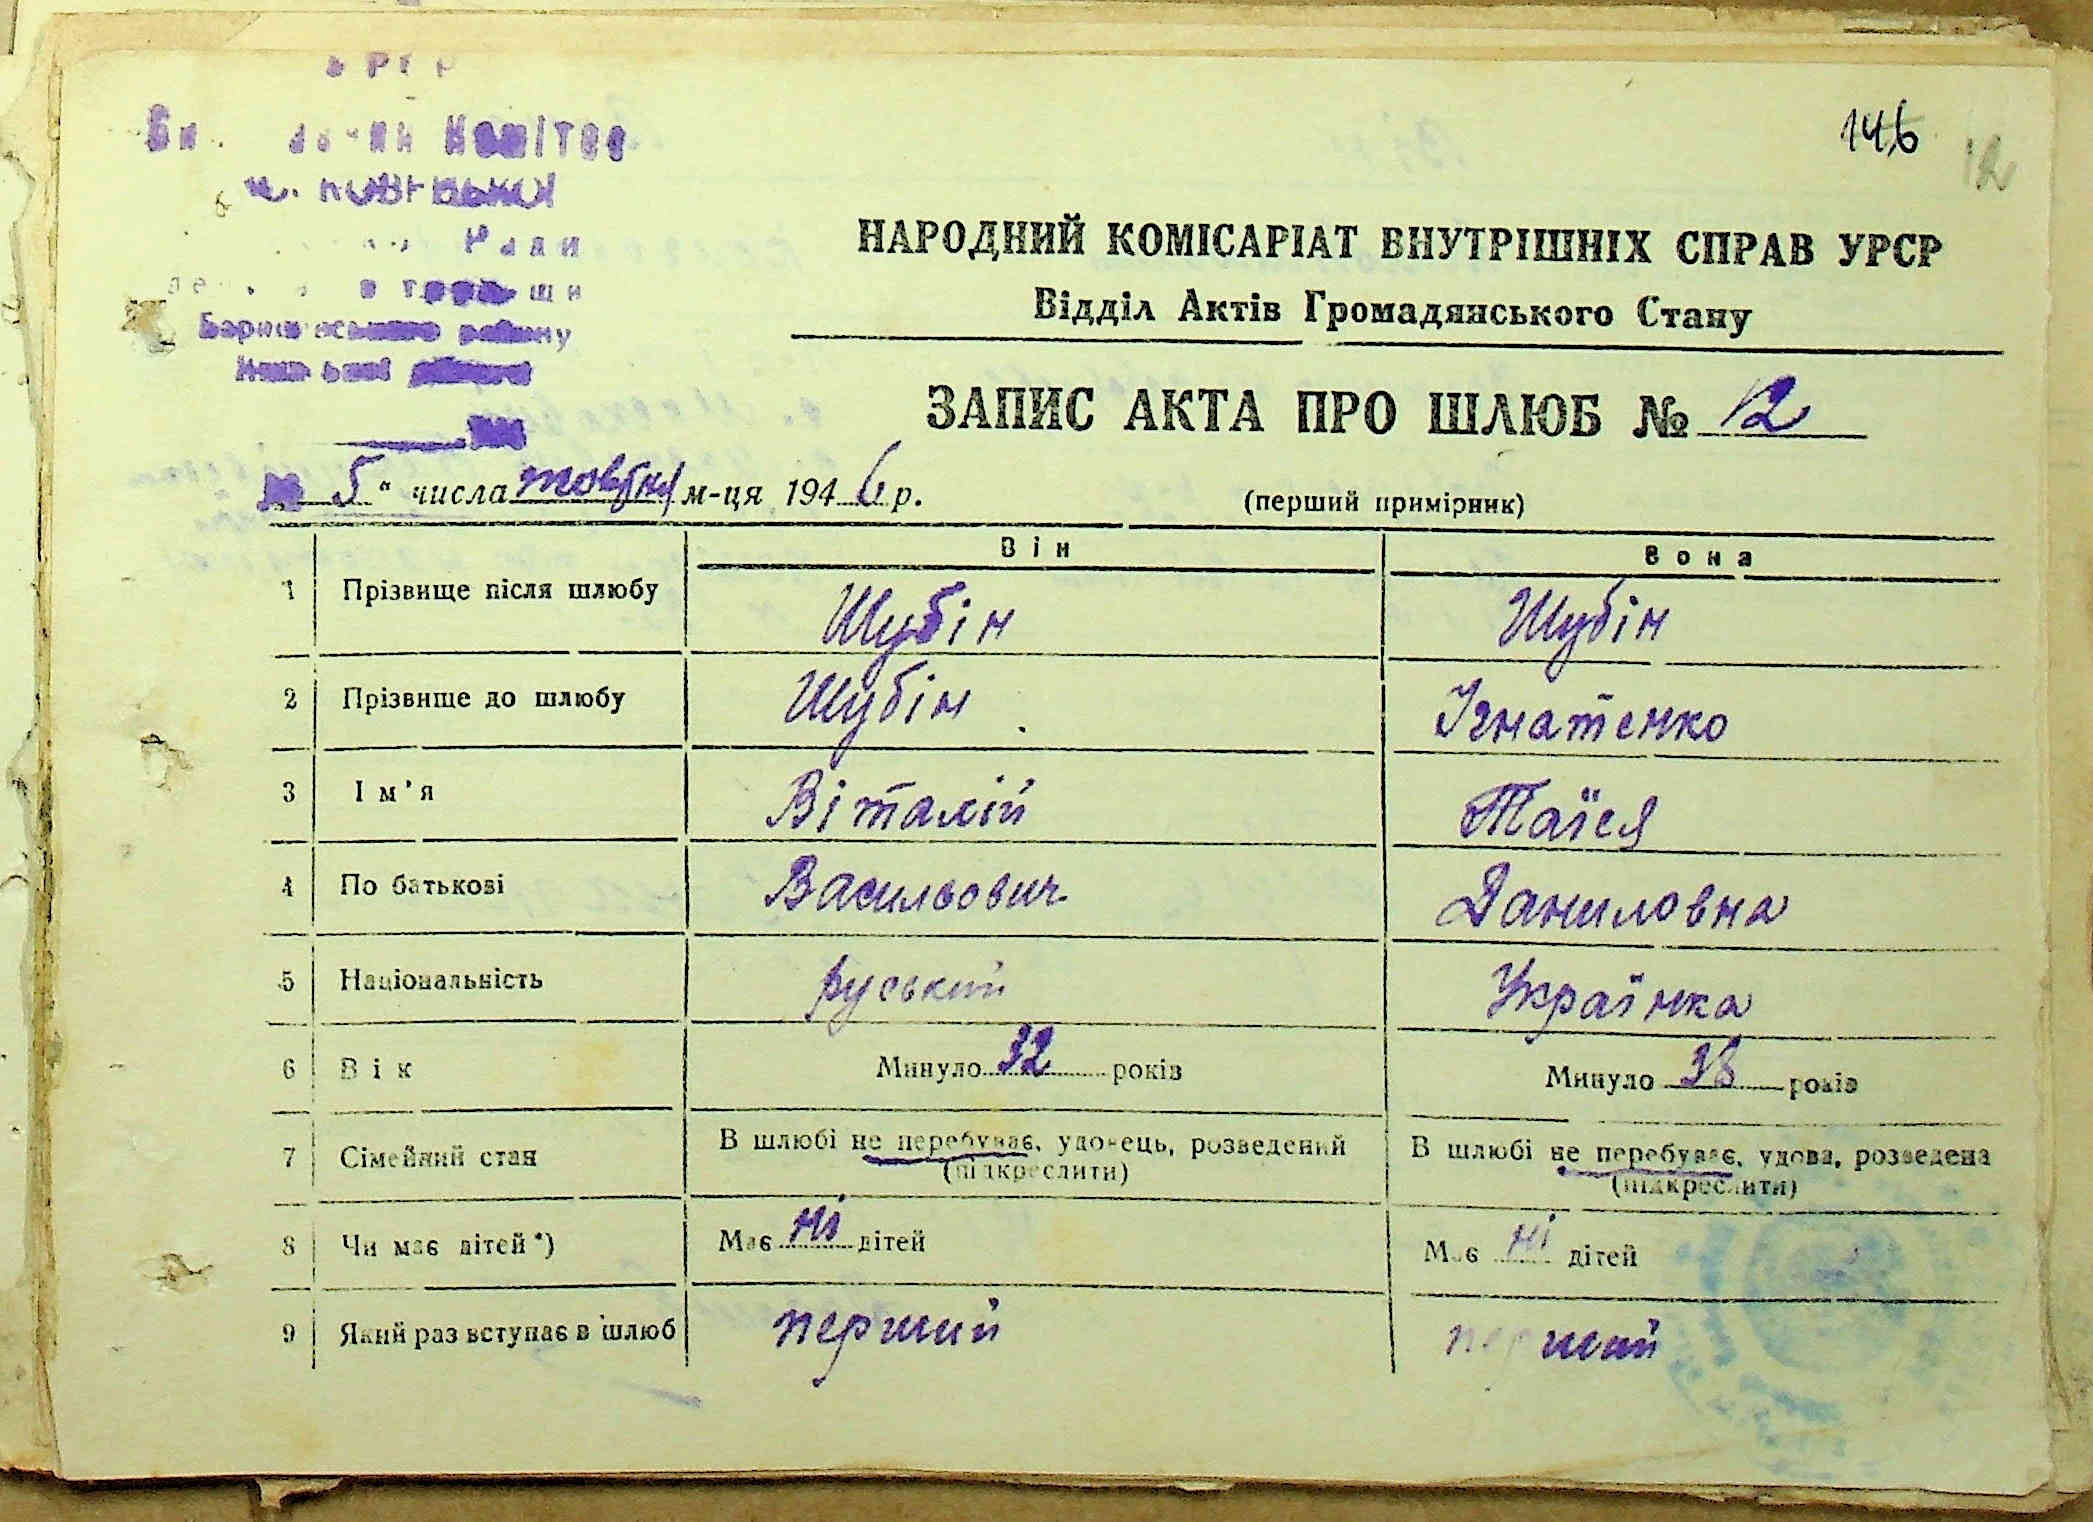 УРСР
Комітет
Ради
району
146 12
НАРОДНИЙ КОМІСАРІАТ ВНУТРІШНІХ СПРАВ УРСР
Відділ Актів Громадянського Стану
ЗАПИС АКТА ПРО ШЛЮБ № 12
5 “ числа жовтня м-ця 1946 р.
(перший примірник)
Він Вона
1 Прізвище після шлюбу Шубін Шубін
2 Прізвище до шлюбу Шубін Ігнатенко
3 Ім’я Віталій Таїся
4 По батькові Васильович Даниловна
5 Національність руський Українка
6 Вік Минуло 32 років Минуло 38 років
7 Сімейний стан В шлюбі не перебуває, удовець, розведений В шлюбі не перебуває, удова, розведена
(підкреслити) (підкреслити)
8 Чи має дітей *) Має ні дітей Має ні дітей
9 Який раз вступає в шлюб перший перший